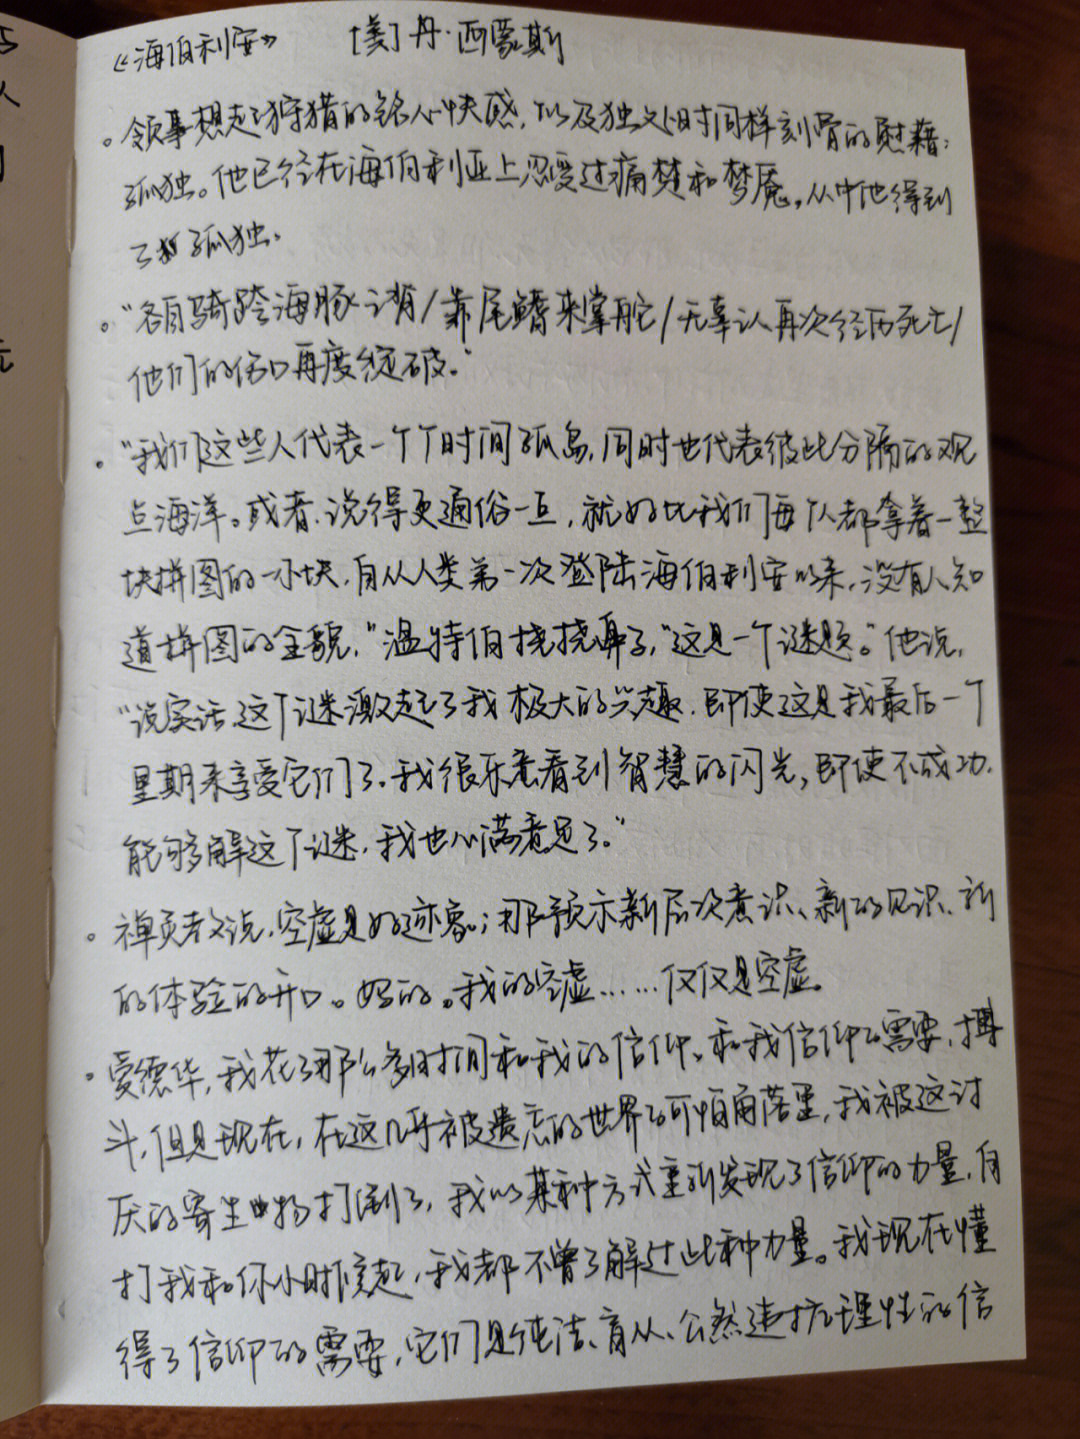 《海伯利安》 [美]丹·西蒙斯
。领事想起了狩猎的铭心快感，以及独处时同样刻骨的慰藉：
孤独。他已经在海伯利亚上忍受过痛楚和梦魇，从中他得到
了孤独。
。“各自骑跨海豚之背/靠尾鳍来掌舵/无辜认再次经历死亡/
他们的伤口再度绽破。”
。“我们这些人代表一个个时间孤岛，同时也代表彼此分隔的观
点海洋。或者，说得更通俗一点，就好比我们每个人都拿着一整
块拼图的一小块，自从人类第一次登陆海伯利安以来，没有人知
道拼图的全貌，”温特伯挠挠鼻子，“这是一个谜题。”他说，
“说实话，这个谜激起了我极大的兴趣，即使这是我最后一个
星期来享受它们了。我很乐意看到智慧的闪光，即使不成功，
能够解这个谜，我也心满意足了。”
。禅灵者又说，空虚是好迹象；那预示新层次意识、新的见识、新
的体验的开口。妈的。我的空虚……仅仅是空虚。
。爱德华，我花了那么多时间和我的信仰、和我信仰的需要，搏
斗，但是现在，在这几乎被遗忘的世界的可怕角落里，我被这讨
厌的寄生物打倒了，我以某种方式重新发现了信仰的力量，自
打我和你小时候起，我都不曾了解过此种力量。我现在懂
得了信仰的需要，它们是纯洁、盲从、公然违抗理性的信